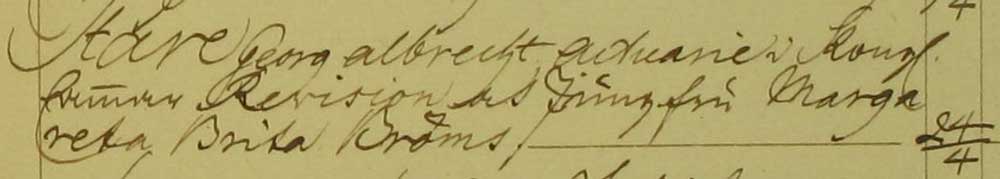 Hare Georg albrecht, actuarie i Kongl.
Camar Revision als Jüngfrü Marga
reta, Brita Bröms, 24/4